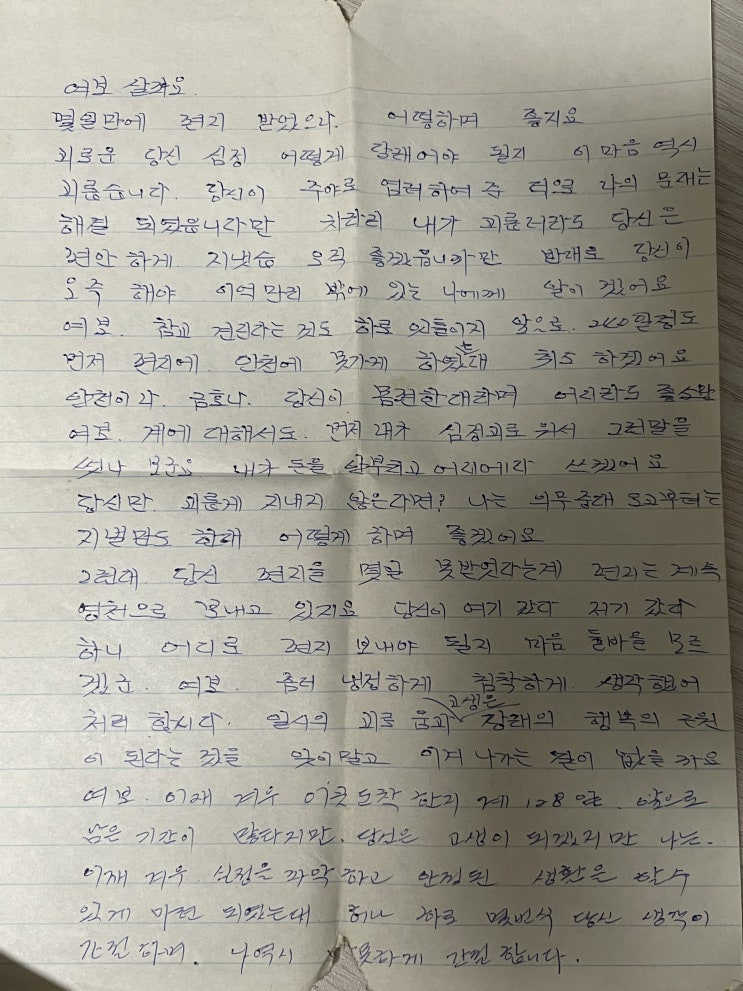 여보 살펴요.
몇일만에 편지 받았으나. 어떻하며 좋지요
괴로운 당신 심정 어떻게 달래어야 될지 이 마음 역시
괴롭습니다. 당신이 주야로 염려하여 준 덕으로 나의 문제는
해결 되었읍니다만 차라리 내가 괴롭더라도 당신은
편안 하게 지냇슴 오직 좋겠읍니까만 반대로 당신이
오죽 해야 이억만리 밖에 있는 나에게 말이 겠어요
여보. 참고 견딘라는 것도 하로 잇틀이지 앞으로. 240일정도
먼저 편지에. 인천에 못가게 하였는대 취소 하겠어요
인천이나. 금호나. 당신이 몸편한대라며 어디라도 좋소만
여보. 계에 대해서도. 먼저 내가 심정괴로워서 그런말을
썻나 보군요 내가 돈을 낭부하고 어디에다 쓰겠어요
당신만. 괴롭게 지내지 않은다면? 나는 의무중대 보고부터는
지별만도 하래 어떻게 하며 좋겠어요
그런대 당신 편지를 몇일 못받엇다는게 편지는 계속
영천으로 보내고 있지요 당신이 여기 갔다 저기 갔다
하니 어디로 편지 보내야 될지 마음 둘바를 모르
겠군. 여보. 좀더 냉정하게 침착하게. 생각했어
처리 합시다. 일시의 괴로움과 고생은 장래의 행복의 근원
이 된다는 것을 잊이말고 이겨 나가는 길이 없을까요
여보. 이재 겨우 이곳 도착 한지 계 128일. 앞으로
남은 기간이 많다지만. 당신은 고생이 되겠지만 나는.
이재 겨우 심정을 파악하고 안정된 생활은 할수
있게 마련 되었는대 허나 하로 몇번식 당신 생각이
간절하며. 나역시 못하게 간절 합니다.